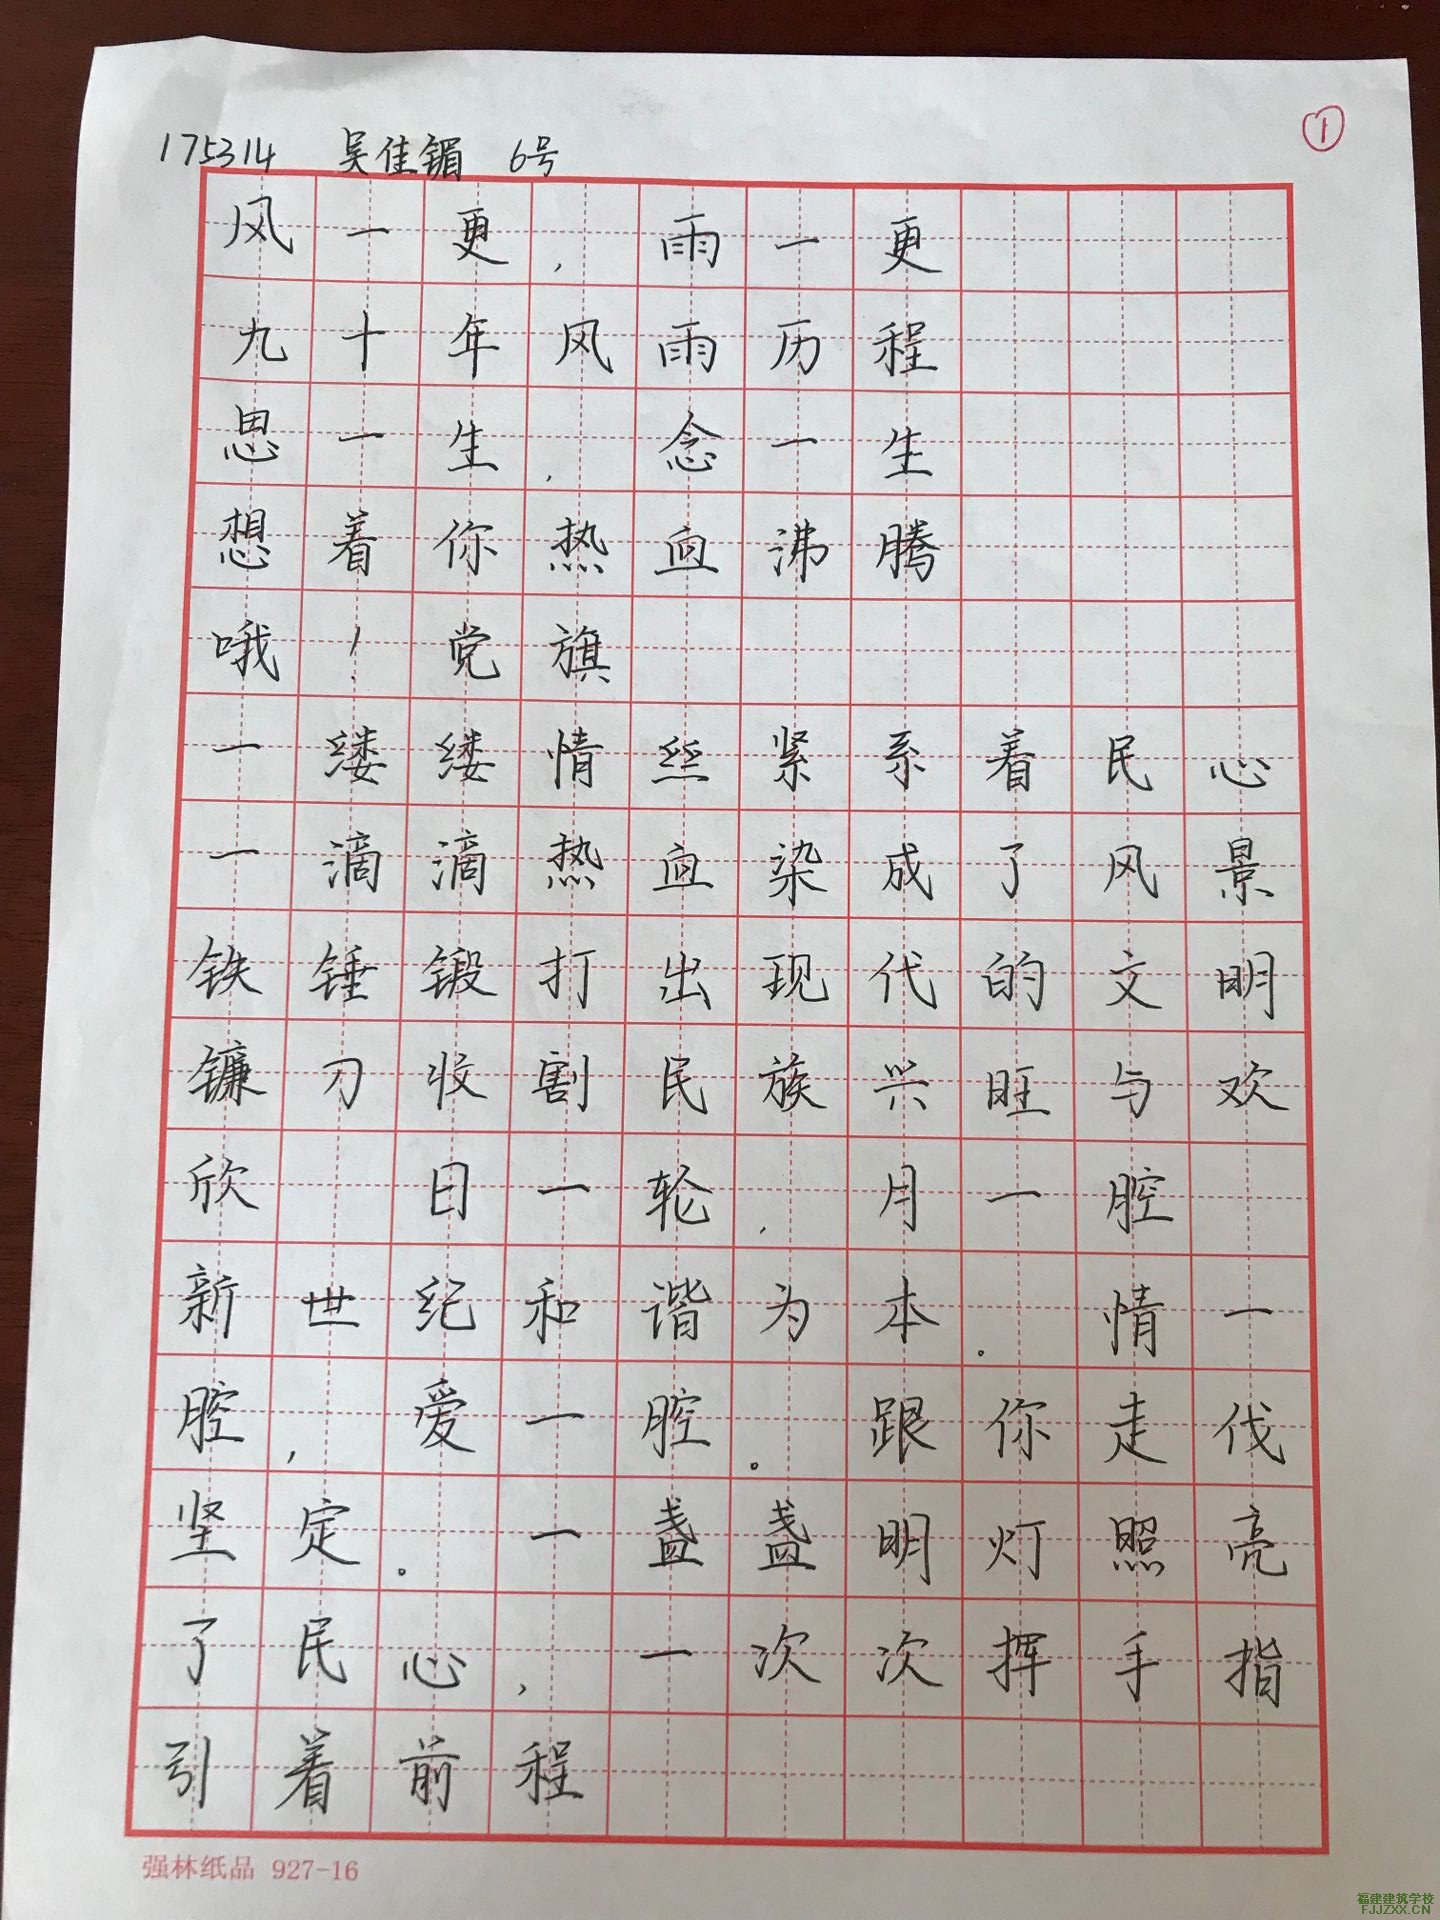 ①
175314 吴佳镅 6号
风一更，雨一更
九十年风雨历程
思一生，念一生
想着你热血沸腾
哦！党旗
一缕缕情丝紧系着民心
一滴滴热血染成了风景
铁锤锻打出现代的文明
镰刀收割民族兴旺与欢
欣 日一轮，月一腔
新世纪和谐为本。情一
腔，爱一腔。跟你走伐
坚定。 一盏盏明灯照亮
了民心，一次次挥手指
引着前程
强林纸品 927-16
福建建筑学校
FJJZXX.CN